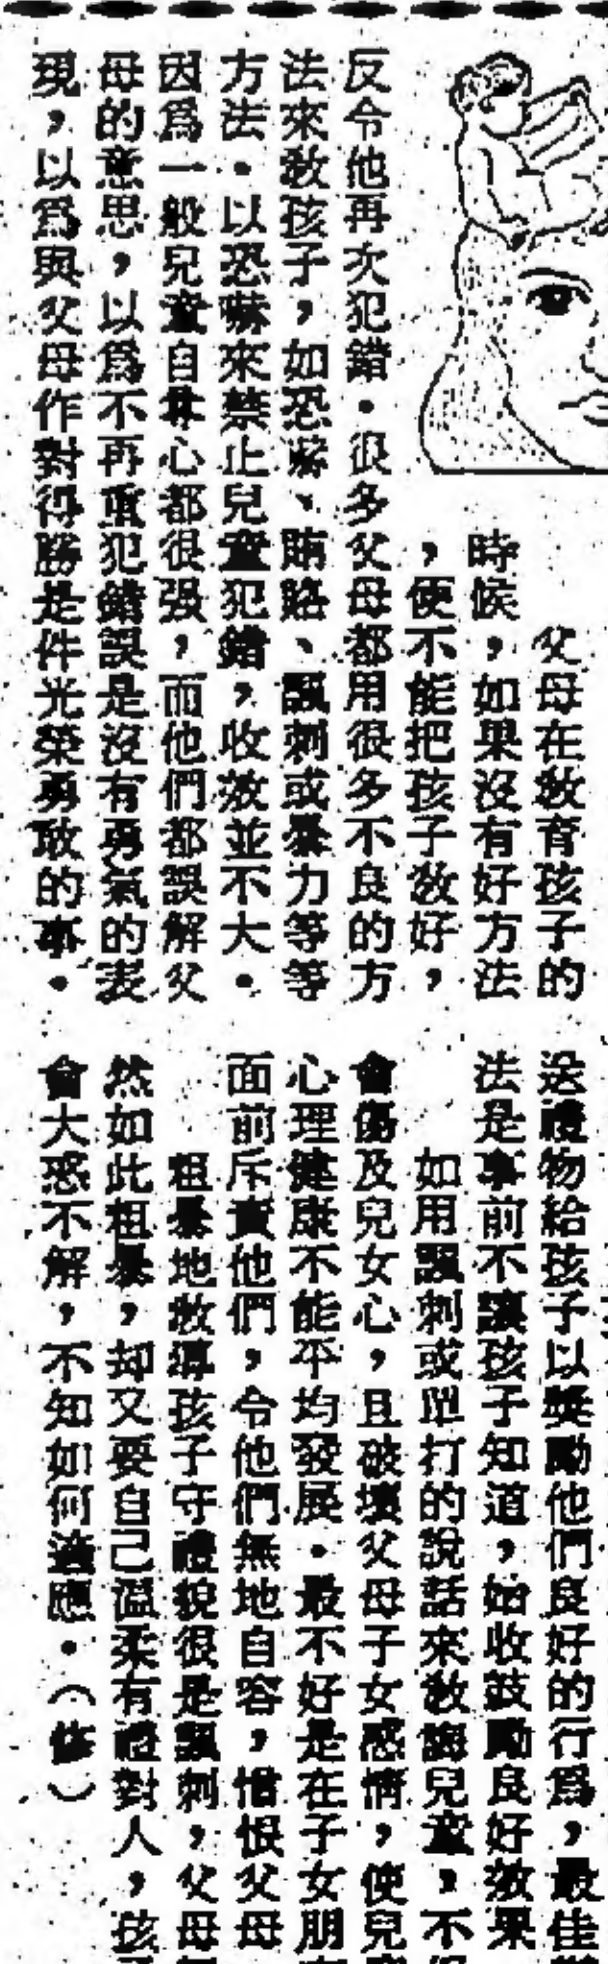 父母在教育孩子的
時候，如果沒有好方法
，便不能把孩子教好，
反令他再次犯錯。很多父母都用很多不良的方
法來教孩子，如恐嚇、賄賂、諷刺或暴力等等
方法。以恐嚇來禁止兒童犯錯，收效並不大。
因爲一般兒童自尊心都很强，而他們都誤解父
母的意思，以爲不再重犯錯誤是沒有勇氣的表
現，以爲與父母作對得勝是件光榮勇敢的事。
送禮物給孩子以獎勵他們良好的行爲，最佳
法是事前不讓孩子知道，始收鼓勵良好效果
如用諷刺或單打的說話來教誨兒童，不
會傷及兒女心，且破壞父母子女感情，使兒
心理健康不能平均發展。最不好是在子女朋
面前斥責他們，令他們無地自容，憎恨父母
粗暴地教導孩子守禮貌很是諷刺，父母
然如此粗暴，却又要自己溫柔有禮對人，孩
會大惑不解，不知如何適應。（修）